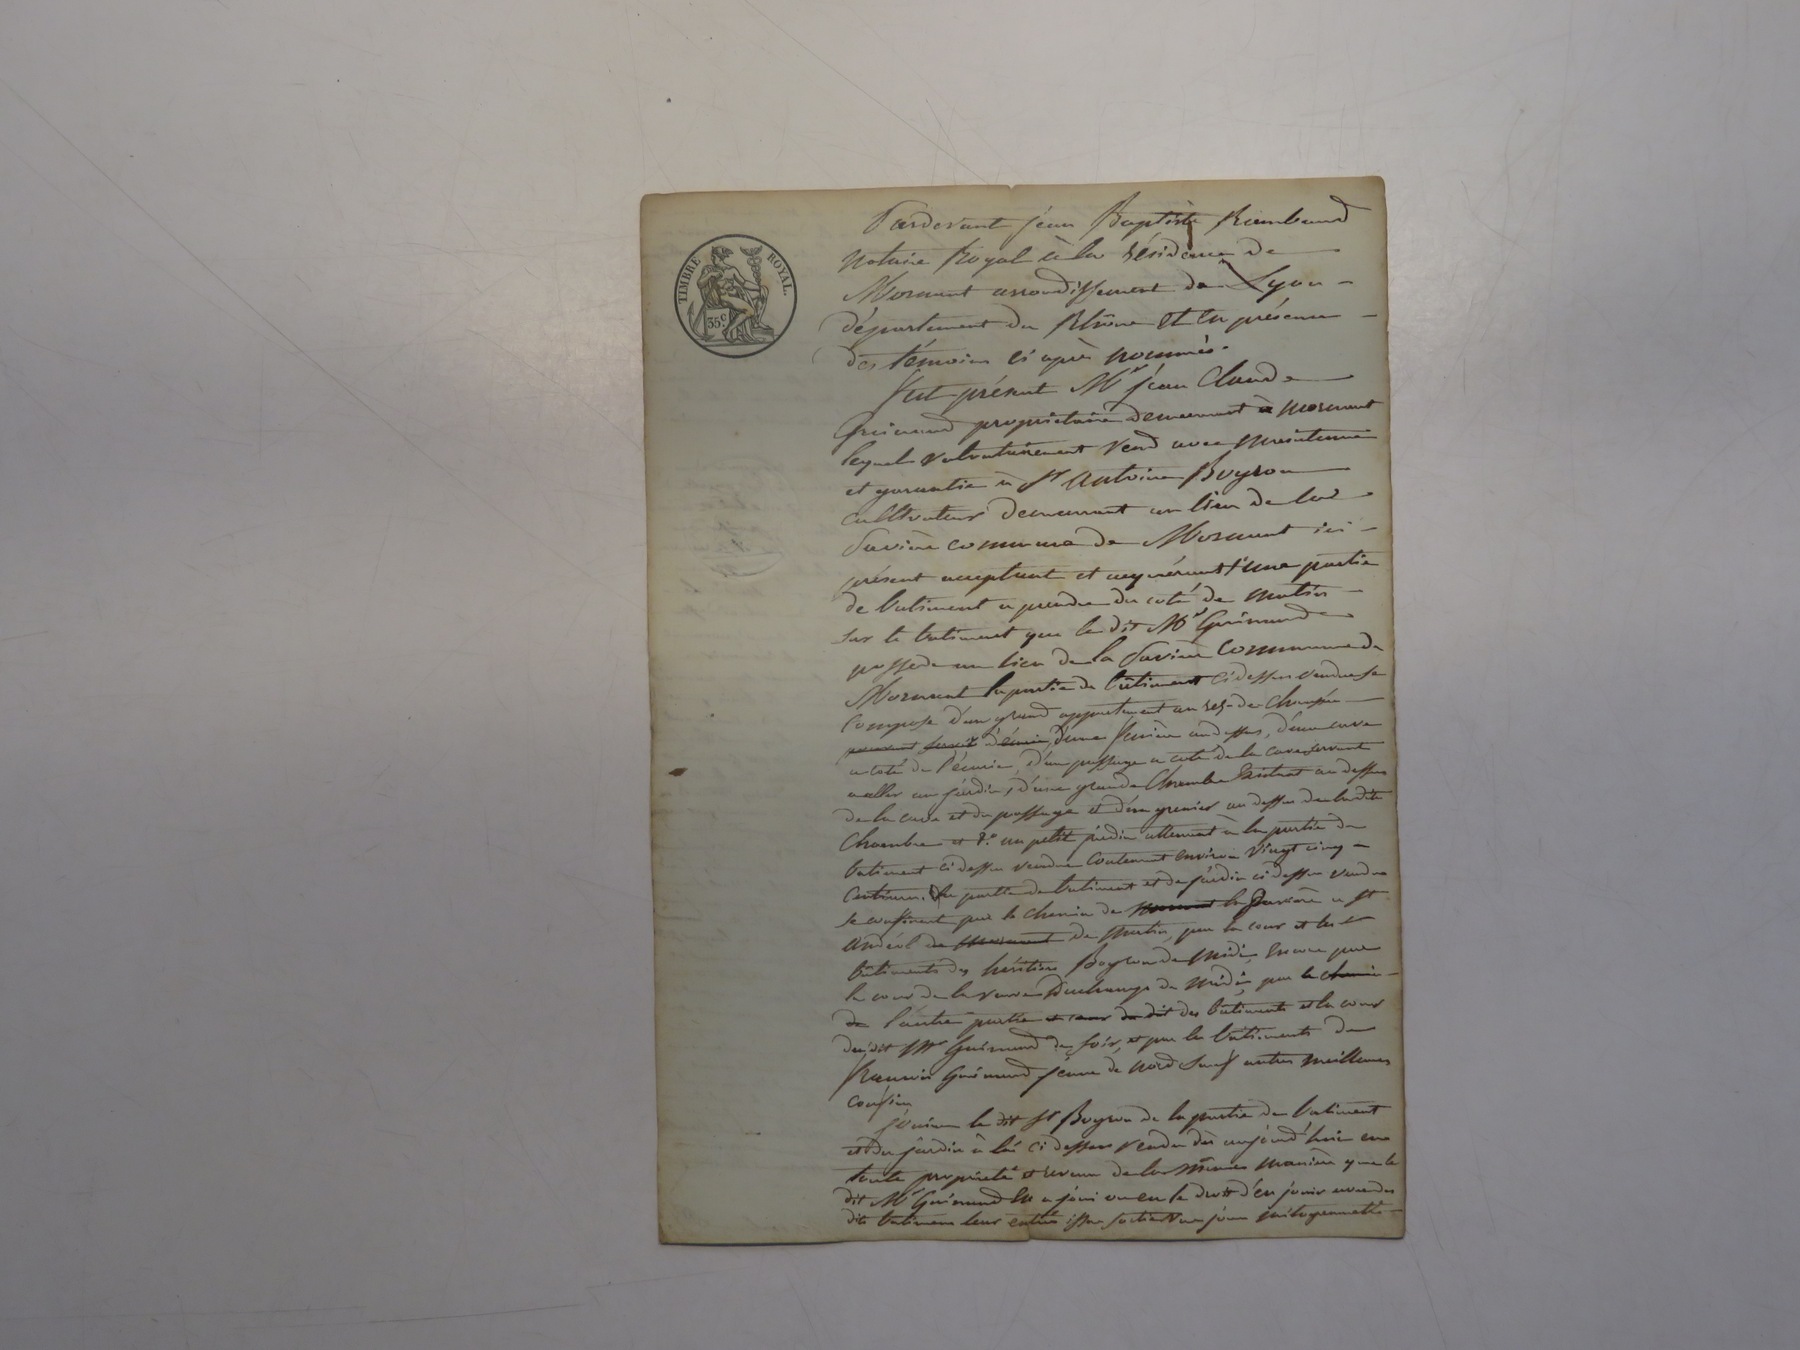 TIMBRE ROYAL.
35 c.
Pardevant jean Baptiste Rambaud
Notaire Royal à la résidence de
Mornant arrondissement de Lyon
département du Rhône et en présence
des témoins ci après nommés.
fut présent Mr jean Claude
propriétaire demeurant à mornant
lequel volontairement vend avec maintenue
et garantie à Sr Antoine Boyron
cultivateur demeurant au lieu de la
commune de Mornant ici
présent acceptant et acquérant 1° une partie
de batiment a prendre du coté de matin
sur le batiment que le dit Mr Guimand
possede au lieu de la commune de
Mornant la partie de bâtiment ci dessus vendue se
compose d'un grand appartement au rez-de chaussée
pouvant servir d'écurie, d'une feniere au dessus, d'une cave
a coté de l'écurie, d'un passage a coté de la cave servant
a aller au jardin, d'une grande chambre existant au dessus
de la cave et du passage et d'un grenier au dessus de la dite
chambre et 2° un petit jardin attenant à la partie de
batiment ci dessus vendue contenant environ vingt cinq
centiares. La partie de batiment et de jardin ci dessus vendue
se confinent par le chemin de a St
Andéol de matin, par la cour et les
bâtiments des héritiers Boyron de midi, encore par
la cour de la veuve de midi, par le chemin
de l'autre partie et cour du dit des bâtiments et la cour
du dit Mr Guimand de soir, et par les bâtiments de
François Guimand jeune de nord sauf autres meilleurs
confins
jouira le dit Sr Boyron de la partie de batiment
et du jardin à lui ci dessus vendu dès aujourd'hui en
toute propriété et revenu de la même manière que le
dit Mr Guimand en a joui ou eu le droit d'en jouir avec des
dits batimens leur entrée issue sortie